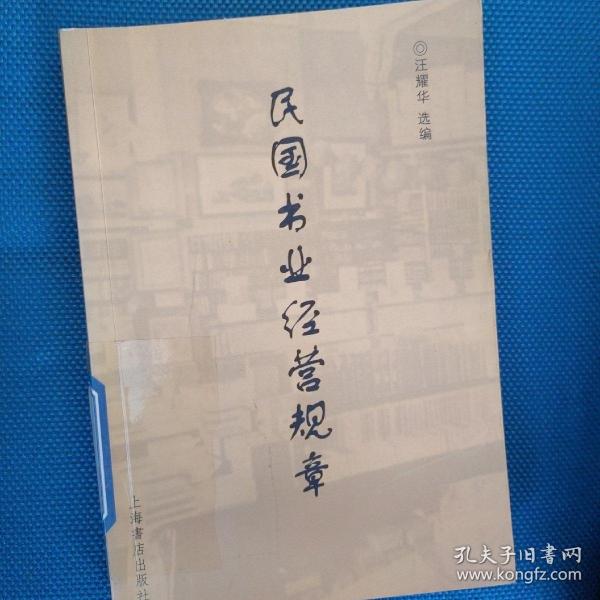 ◎汪耀华 选编
民国书业经营规章
上海書店出版社
孔夫子旧书网
www.kongfz.com